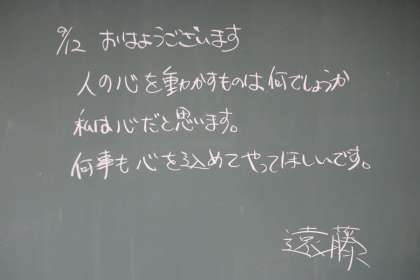 9/12 おはようございます
人の心を動かすものは何でしょうか
私は心だと思います。
何事も心を込めてやってほしいです。
遠藤